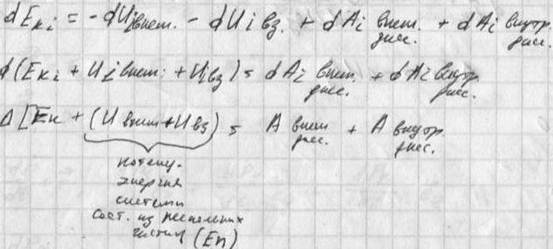 dE_{кi} = -dU_{i внеш.} - dU_{i вз.} + dA_{i внеш. дисс.} + dA_{i внутр. дисс.}
d(E_{кi} + U_{i внеш.} + U_{i вз}) = dA_{i внеш. дисс.} + dA_{i внутр. дисс.}
Δ[E_к + (U_{внеш} + U_{вз}) = A_{внеш дисс.} + A_{внутр. дисс.}
потенц.
энергия
системы
сост. из нескольких
частиц (E_п)